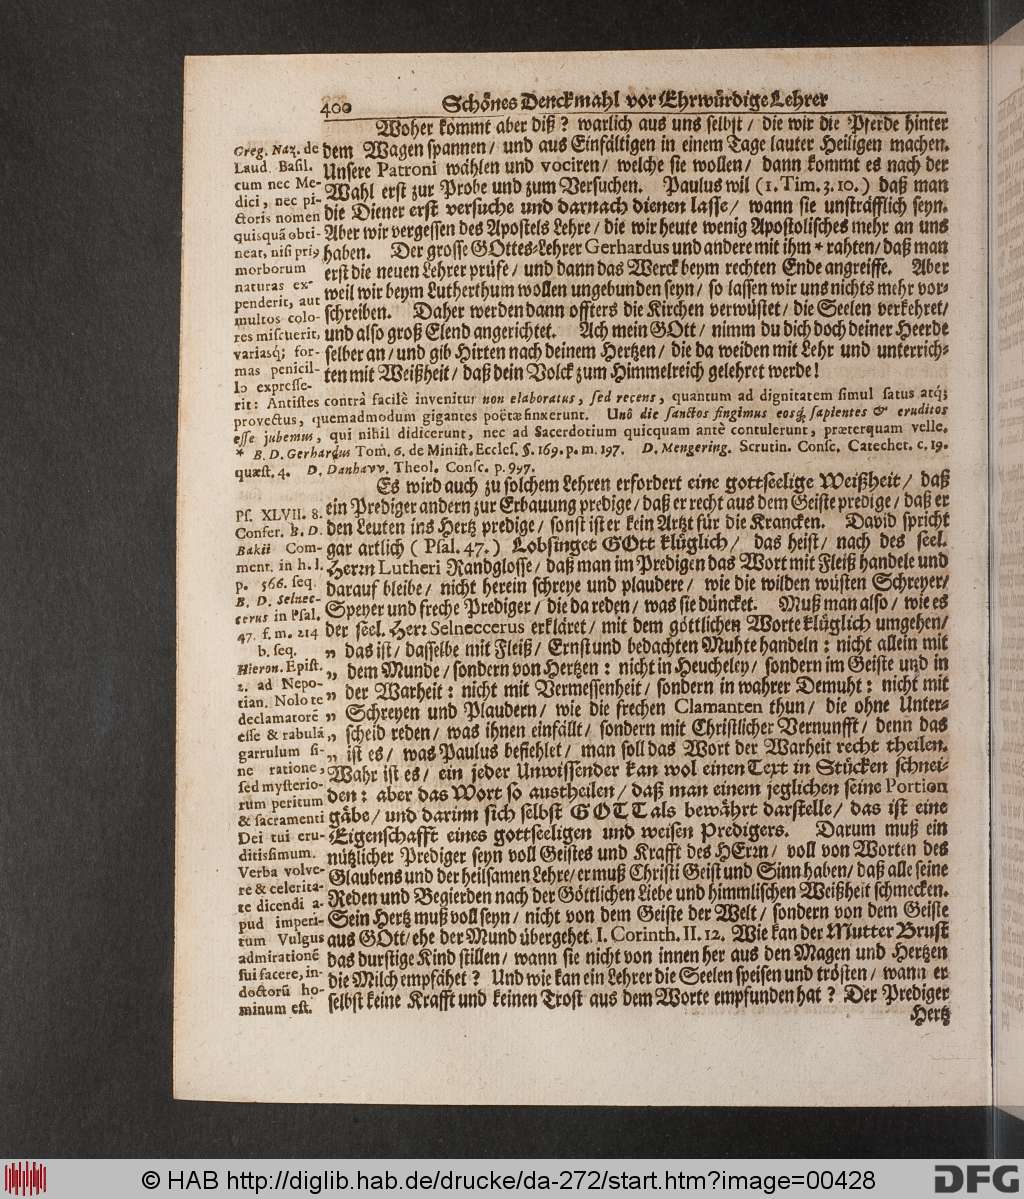 400
Schönes Denckmahl vor Ehrwürdige Lehrer
Woher kommt aber diß? warlich aus uns selbst / die wir die Pferde hinter
dem Wagen spannen / und aus Einfältigen in einem Tage lauter Heiligen machen.
Unsere Patroni wählen und vociren / welche sie wollen / dann kommt es nach der
Wahl erst zur Probe und zum Versuchen. Paulus wil (1. Tim. 3. 10.) daß man
die Diener erst versuche und darnach dienen lasse / wann sie unsträfflich seyn.
Aber wir vergessen des Apostels Lehre / die wir heute wenig Apostolisches mehr an uns
haben. Der grosse GOttes-Lehrer Gerhardus und andere mit ihm * rahten / daß man
erst die neuen Lehrer prüfe / und dann das Werck beym rechten Ende angreiffe. Aber
weil wir beym Lutherthum wollen ungebunden seyn / so lassen wir uns nichts mehr vor-
schreiben. Daher werden dann offters die Kirchen verwüstet / die Seelen verkehret /
und also groß Elend angerichtet. Ach mein GOtt / nimm du dich doch deiner Heerde
selber an / und gib Hirten nach deinem Hertzen / die da weiden mit Lehr und unterrich-
ten mit Weißheit / daß dein Volck zum Himmelreich gelehret werde!
Greg. Naz. de
Laud. Basil.
cum nec Me-
dici, nec pi-
ctoris nomen
quisquā obti-
neat, nisi priꝰ
morborum
naturas ex-
penderit, aut
multos colo-
res miscuerit,
variasq; for-
mas penicil-
lo expresse-
rit: Antistes contrà facilè invenitur non elaboratus, sed recens, quantum ad dignitatem simul satus atq;
provectus, quemadmodum gigantes poëtæ finxerunt. Unô die sanctos fingimus eosq; sapientes & eruditos
esse jubemus, qui nihil didicerunt, nec ad Sacerdotium quicquam antè contulerunt, præterquam velle.
* B. D. Gerhardus Tom. 6. de Minist. Eccles. §. 169. p. m. 197. D. Mengering. Scrutin. Consc. Catechet. c. 19.
quæst. 4. D. Danhavv. Theol. Consc. p. 997.
Es wird auch zu solchem Lehren erfordert eine gottseelige Weißheit / daß
ein Prediger andern zur Erbauung predige / daß er recht aus dem Geiste predige / daß er
den Leuten ins Hertz predige / sonst ist er kein Artzt für die Krancken. David spricht
gar artlich (Psal. 47.) Lobsinget GOtt klüglich / das heist / nach des seel.
Herrn Lutheri Randglosse / daß man im Predigen das Wort mit Fleiß handele und
darauf bleibe / nicht herein schreye und plaudere / wie die wilden wüsten Schreyer /
Speyer und freche Prediger / die da reden / was sie düncket. Muß man also / wie es
der seel. Herr Selneccerus erkläret / mit dem göttlichen Worte klüglich umgehen /
„ das ist / dasselbe mit Fleiß / Ernst und bedachten Muhte handeln: nicht allein mit
„ dem Munde / sondern von Hertzen: nicht in Heucheley / sondern im Geiste und in
„ der Warheit: nicht mit Vermessenheit / sondern in wahrer Demuht: nicht mit
„ Schreyen und Plaudern / wie die frechen Clamanten thun / die ohne Unter-
„ scheid reden / was ihnen einfällt / sondern mit Christlicher Vernunfft / denn das
„ ist es / was Paulus befiehlet / man soll das Wort der Warheit recht theilen.
Wahr ist es / ein jeder Unwissender kan wol einen Text in Stücken schnei-
den: aber das Wort so austheilen / daß man einem jeglichen seine Portion
gäbe / und darinn sich selbst GOTT als bewährt darstelle / das ist eine
Eigenschafft eines gottseeligen und weisen Predigers. Darum muß ein
nützlicher Prediger seyn voll Geistes und Krafft des HErrn / voll von Worten des
Glaubens und der heilsamen Lehre / er muß Christi Geist und Sinn haben / daß alle seine
Reden und Begierden nach der Göttlichen Liebe und himmlischen Weißheit schmecken.
Sein Hertz muß voll seyn / nicht von dem Geiste der Welt / sondern von dem Geiste
aus GOtt / ehe der Mund übergehet. I. Corinth. II. 12. Wie kan der Mutter Brust
das durstige Kind stillen / wann sie nicht von innen her aus den Magen und Hertzen
die Milch empfähet? Und wie kan ein Lehrer die Seelen speisen und trösten / wann er
selbst keine Krafft und keinen Trost aus dem Worte empfunden hat? Der Prediger
Hertz
Ps. XLVII. 8.
Confer. B. D.
Bakii Com-
ment. in h. l.
p. 566. seq.
B. D. Selnec-
cerus in Psal.
47. f. m. 214
b. seq.
Hieron. Epist.
2. ad Nepo-
tian. Nolo te
declamatorē
esse & rabulā
garrulum si-
ne ratione,
sed mysterio-
rum peritum
& sacramenti
Dei tui eru-
ditissimum.
Verba volve-
re & celerita-
te dicendi a-
pud imperi-
tum Vulgus
admirationē
sui facere, in-
doctorū ho-
minum est.
© HAB http://diglib.hab.de/drucke/da-272/start.htm?image=00428
DFG